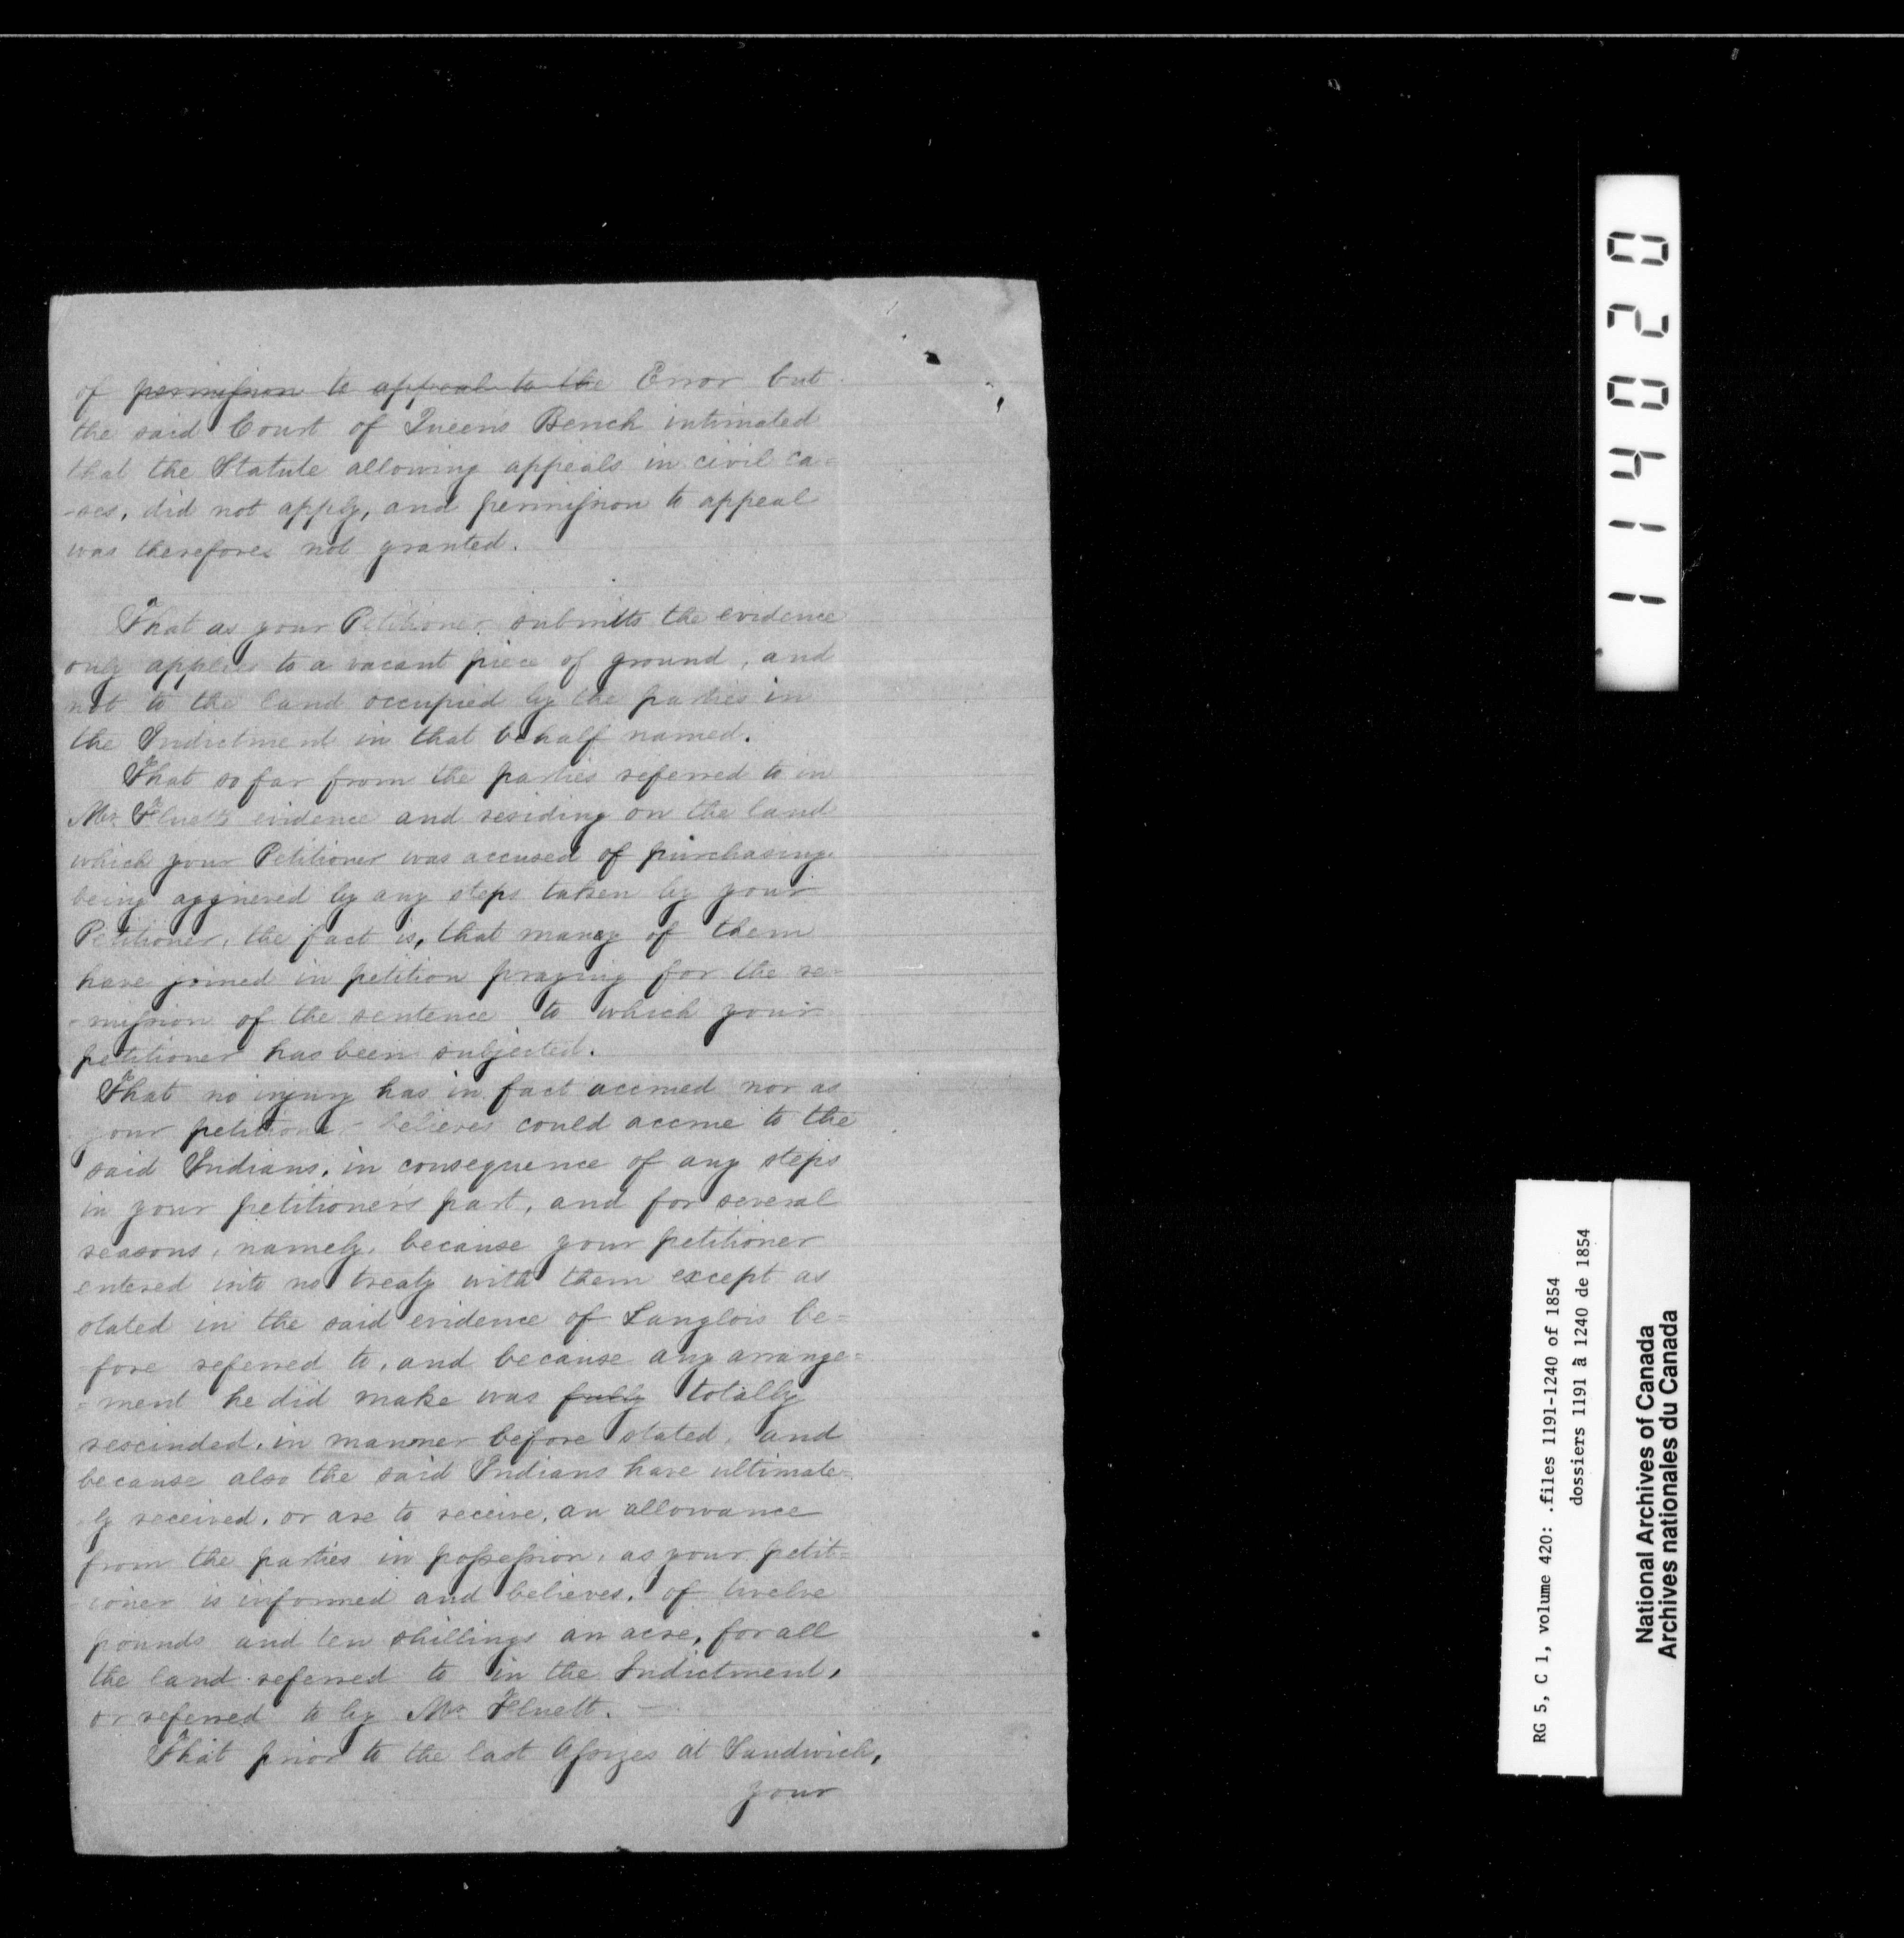 of ~~permission to appeal to the~~ Error but
the said Court of Queen's Bench intimated
that the Statute allowing appeals in civil ca-
-ses, did not apply, and permission to appeal
was therefore not granted.
That as your Petitioner submitts the evidence
only applies to a vacant piece of ground, and
not to the land occupied by the parties in
the Indictment in that behalf named.
That so far from the parties referred to in
Mr. Fluett's evidence and residing on the land
which your Petitioner was accused of purchasing
being aggrieved by any steps taken by your
Petitioner, the fact is, that many of them
have joined in petition praying for the re=
-mission of the sentence to which your
petitioner has been subjected.
That no injury has in fact accrued nor as
your petitioner believes could accrue to the
said Indians, in consequence of any steps
in your petitioner's part, and for several
reasons, namely, because your petitioner
entered into no treaty with them except as
stated in the said evidence of Langlois be=
=fore referred to, and because any arrange=
=ment he did make was ~~fully~~ totally
rescinded, in manner before stated, and
because also the said Indians have ultimate=
-ly received, or are to receive, an allowance
from the parties in possession, as your petit=
-ioner is informed and believes, of twelve
pounds and ten shillings an acre, for all
the land referred to in the Indictment,
or referred to by Mr Fluett. —
That prior to the last Assizes at Sandwich,
your
114020
RG 5, C 1, volume 420: .files 1191-1240 of 1854
dossiers 1191 à 1240 de 1854
National Archives of Canada
Archives nationales du Canada